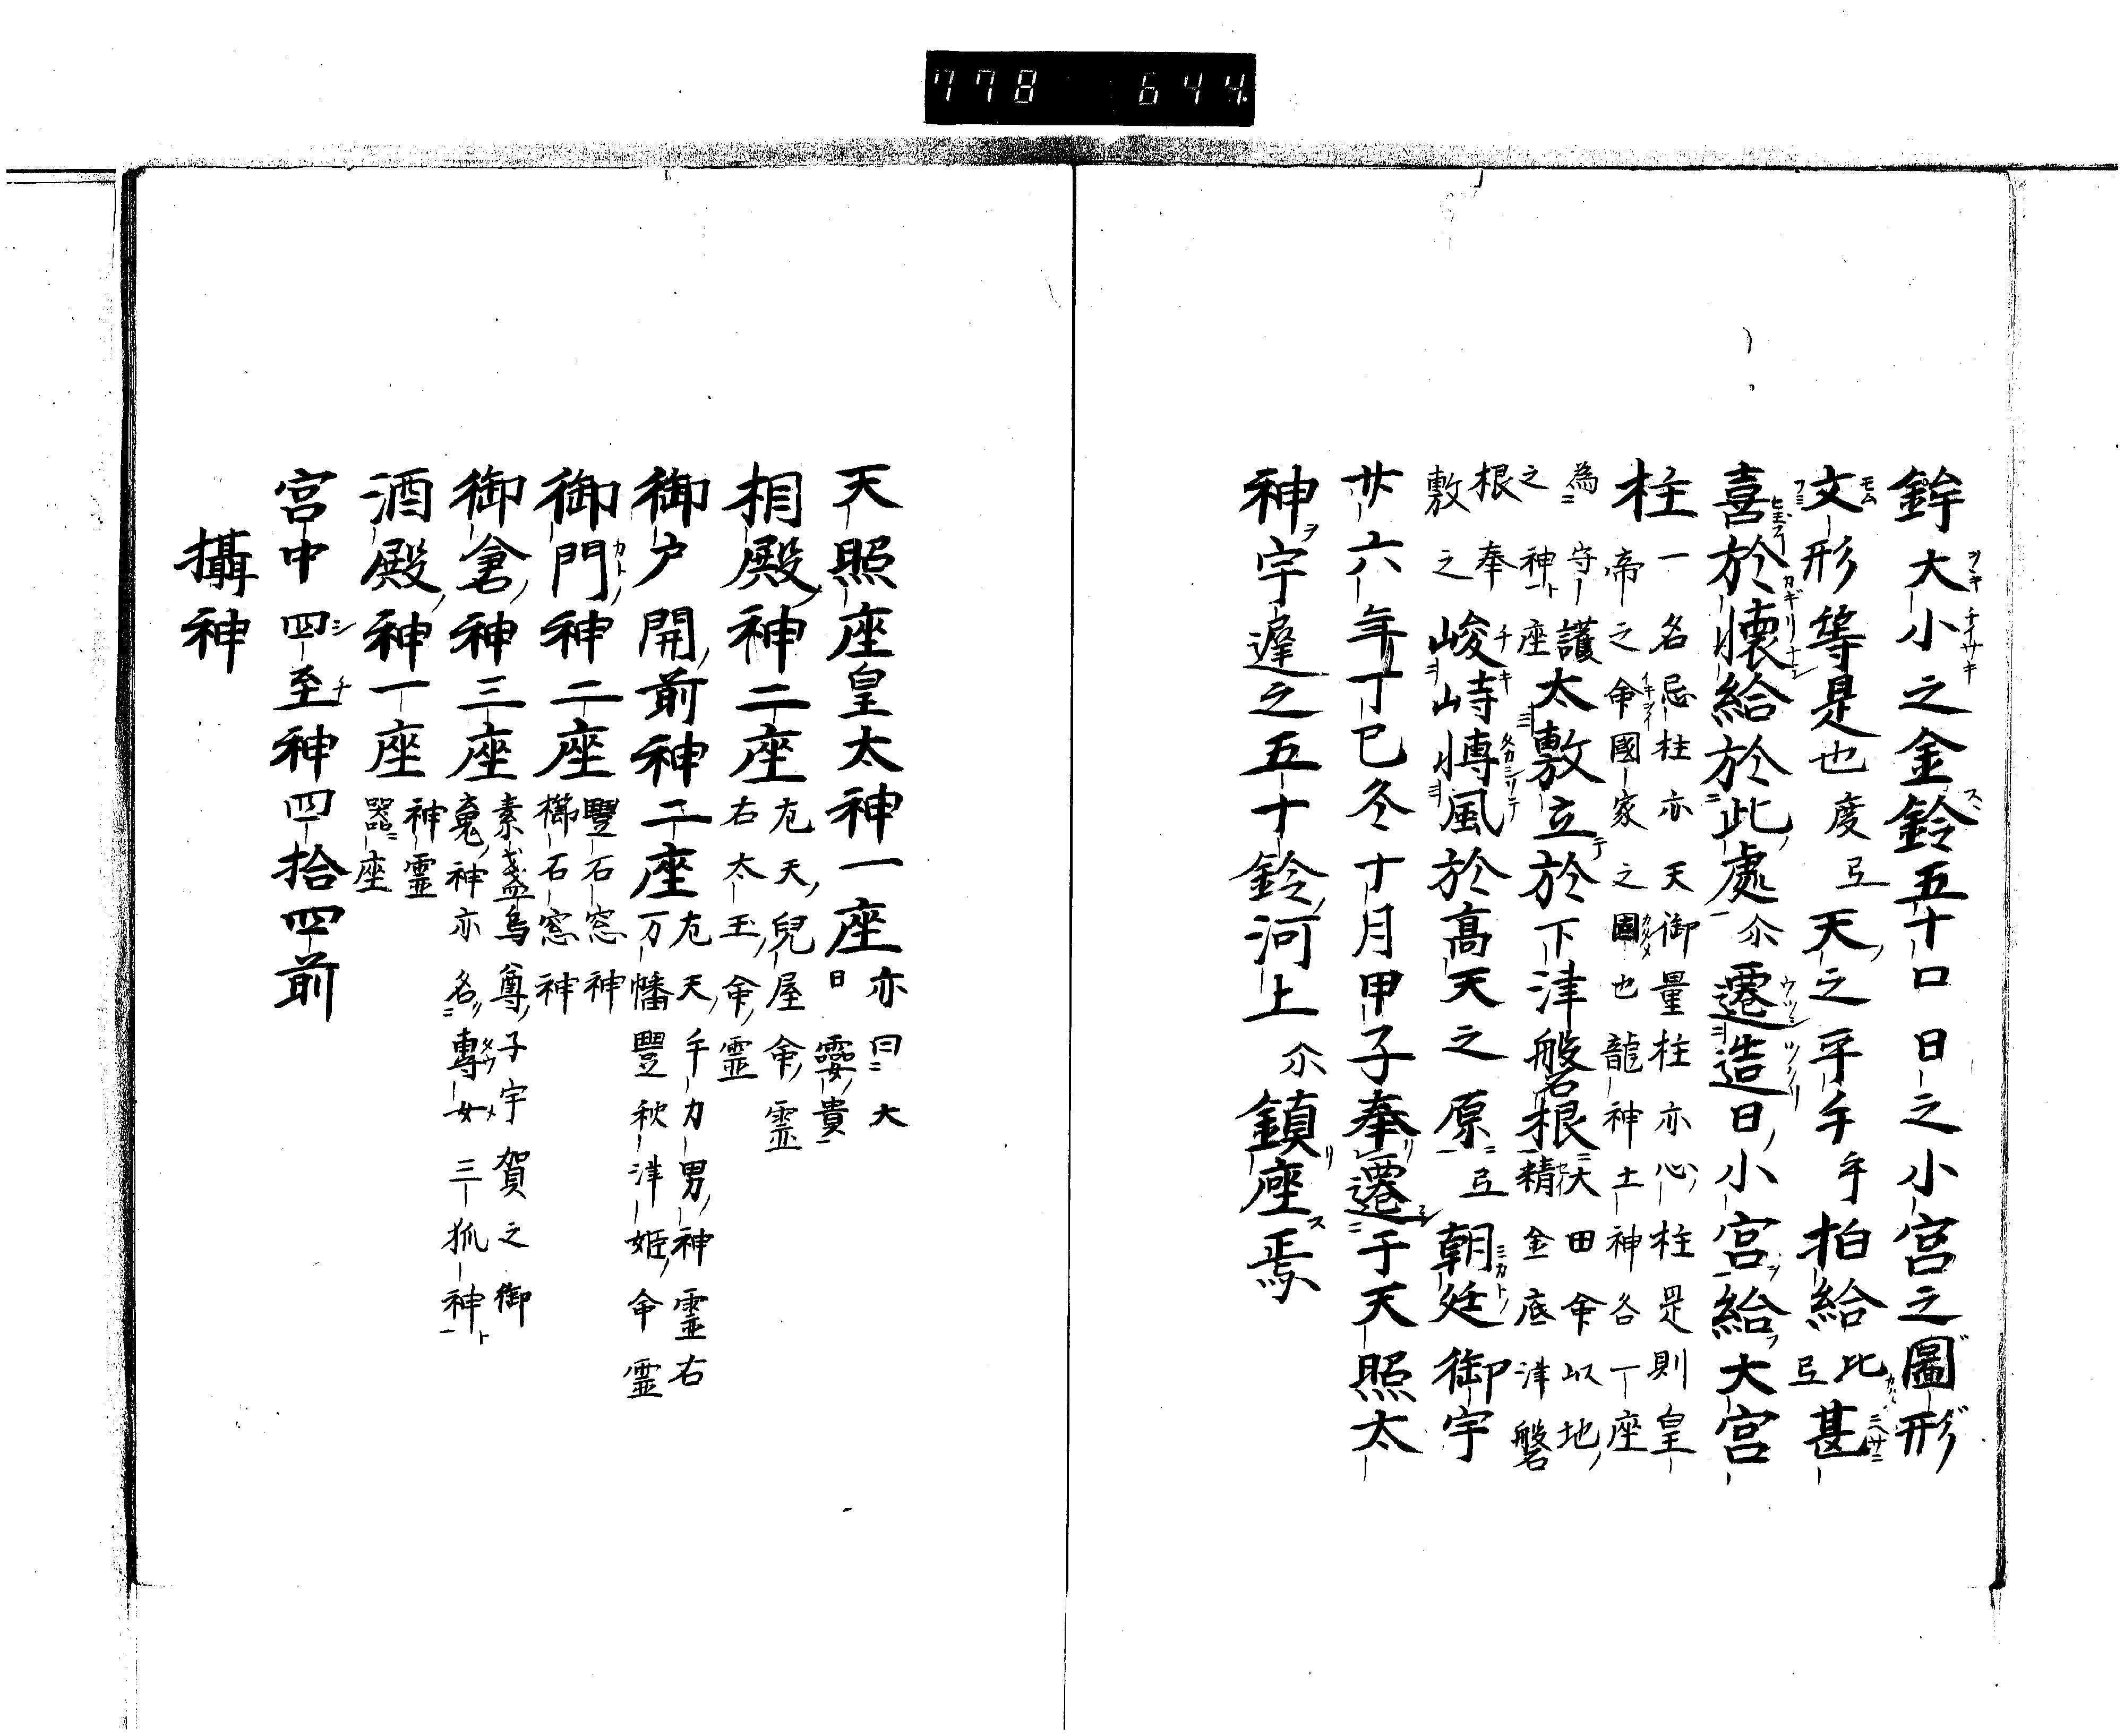 778 644.
鉾大小之金鈴五十口日之小宮之圖形
文形等是也度弖天之平手手拍給比弖甚
喜於懐給於此處尒遷造日小宮給大宮
柱一名忌柱亦天御量柱亦心柱是則皇
帝之命國家之固也龍神土神各一座
為守護太敷立於下津磐根大田命以地
之神座精金底津磐
根奉敷之峻峙慱風於高天之原弖朝廷御宇
廿六年丁巳冬十月甲子奉遷于天照太
神宇遅之五十鈴河上尒鎮座焉
天照座皇太神一座亦曰大日孁貴
相殿神二座左天兒屋命霊右太玉命霊
御戸開前神二座左天手力男神霊右万幡豊秋津姫命霊
御門神二座豊石窓神櫛石窓神
御倉神三座素戔烏尊子宇賀之御竃神亦名專女三狐神
酒殿神一座神霊器座
宮中四至神四拾四前
攝神